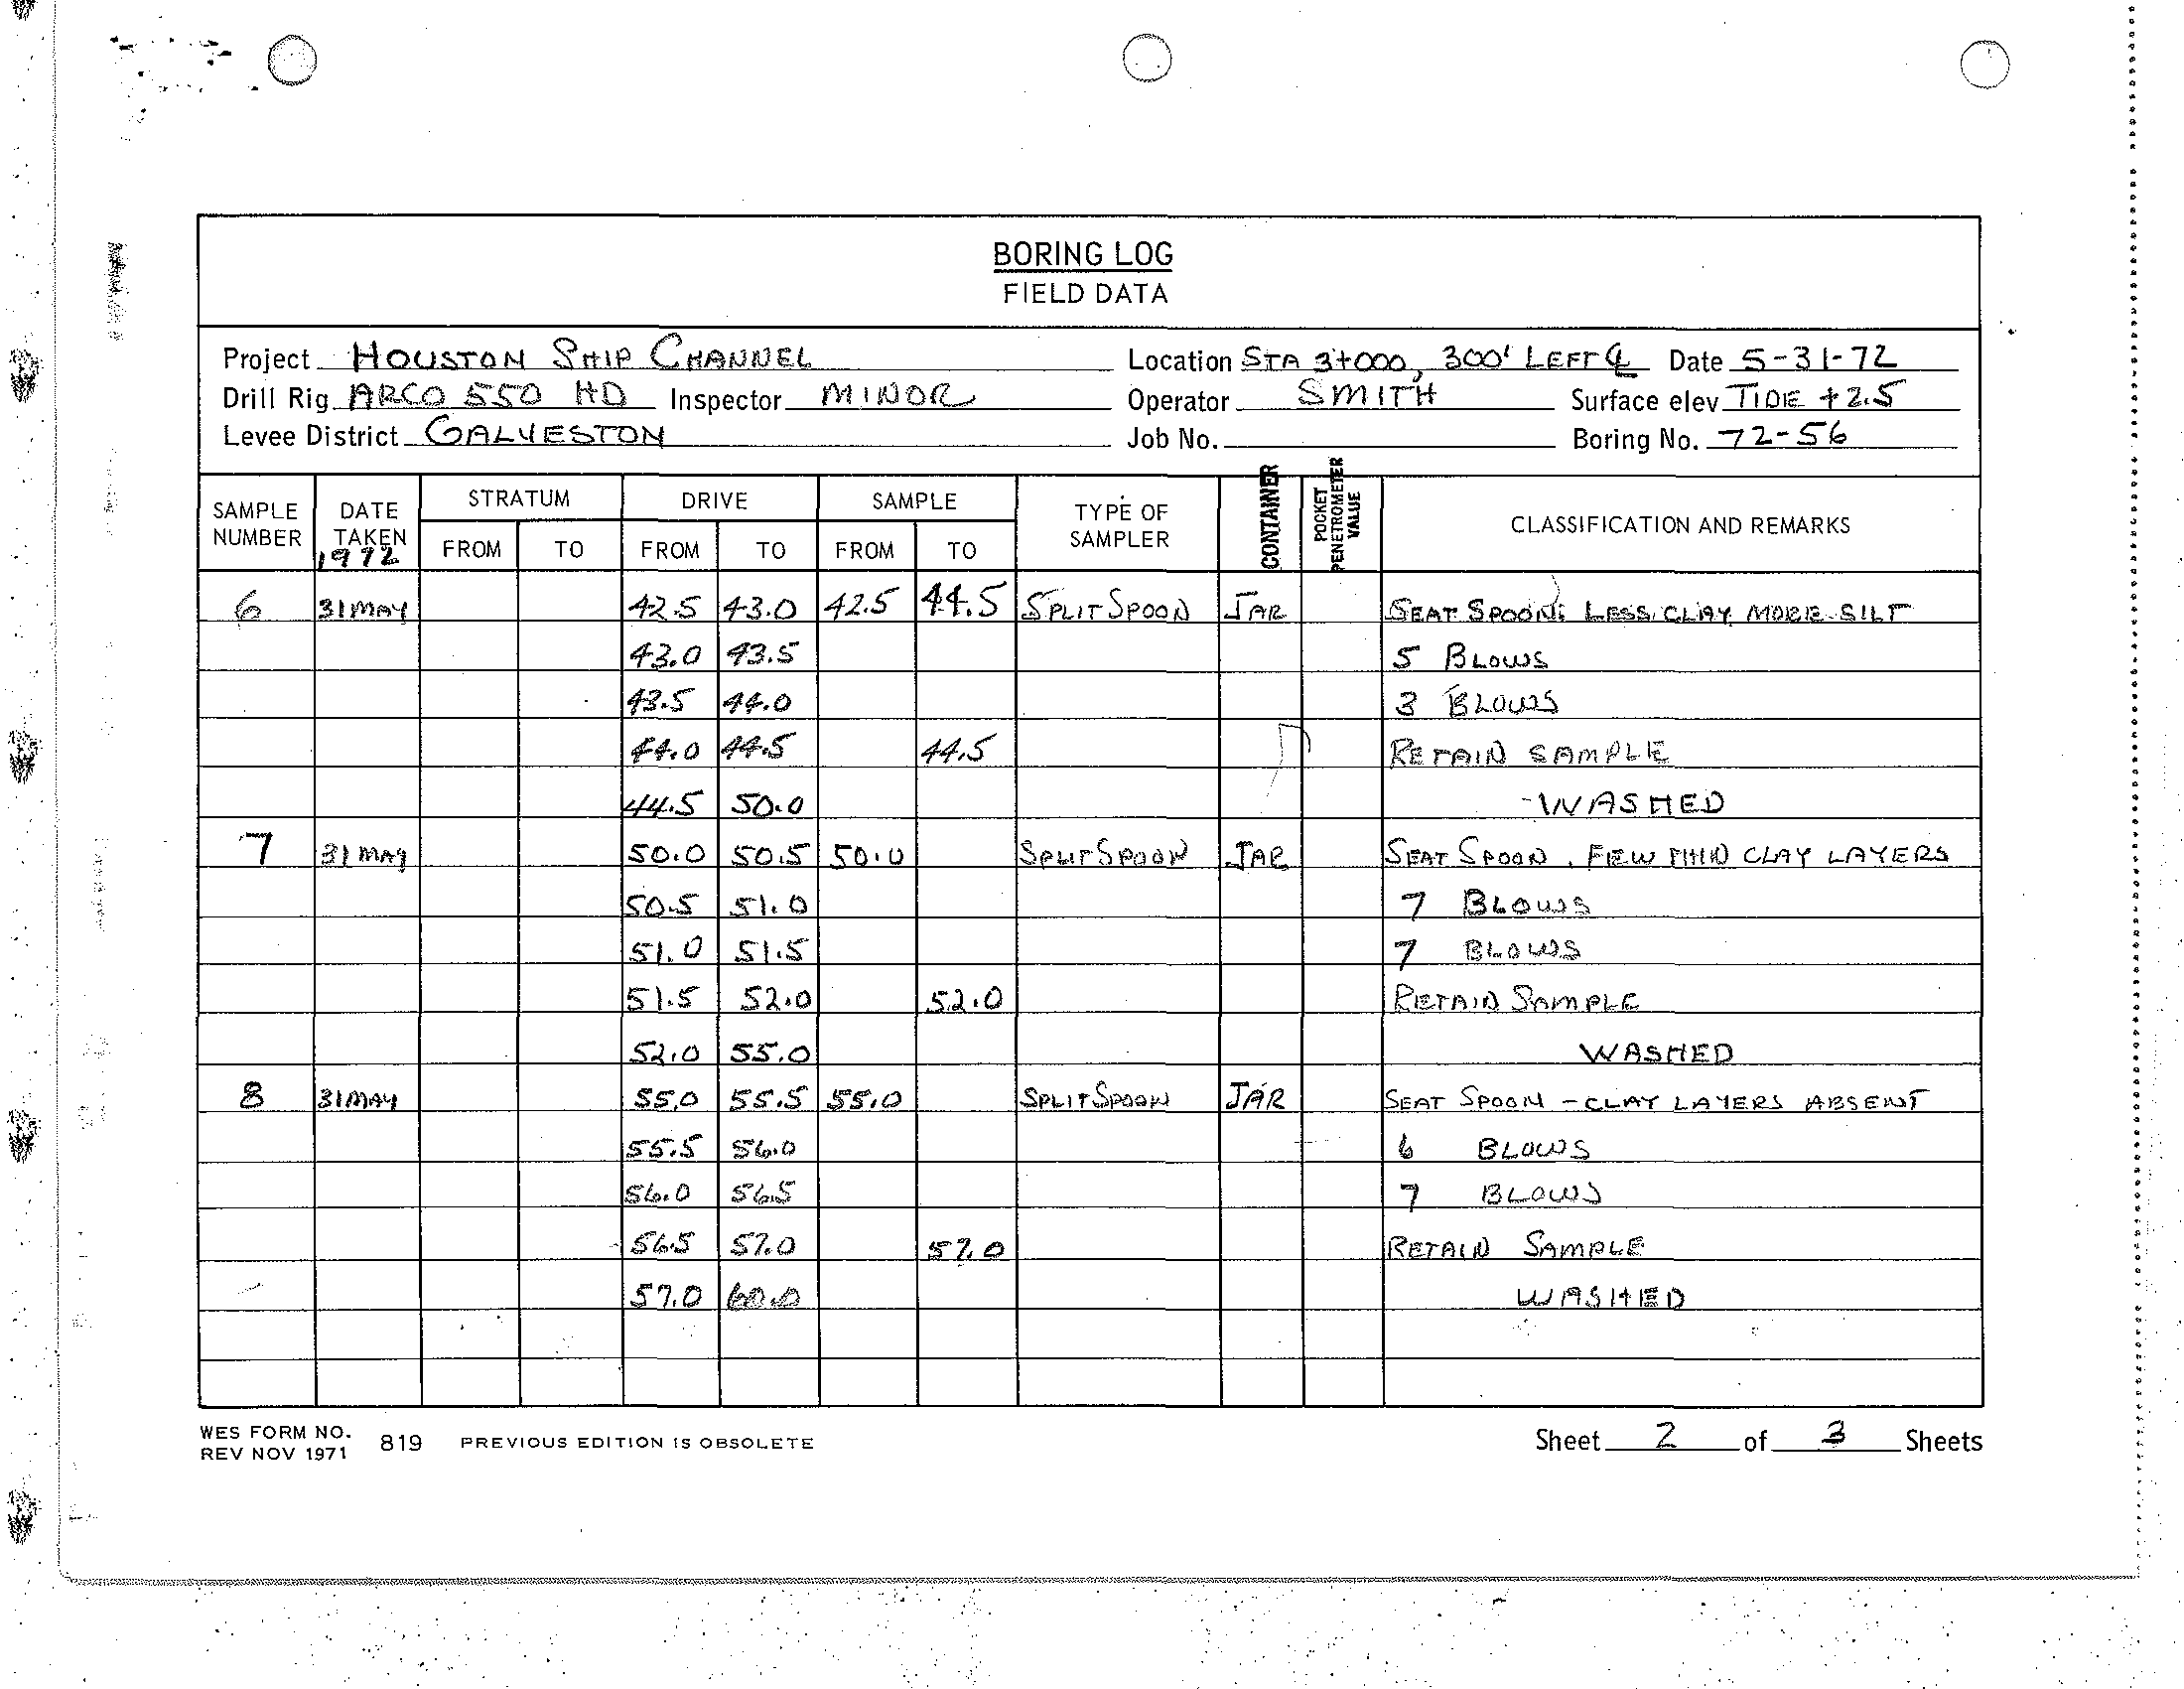 BORING LOG
FIELD DATA
Project HOUSTON SHIP CHANNEL Location STA 3+000, 300' LEFT ℄ Date 5-31-72
Drill Rig ARCO 550 HD Inspector MINOR Operator SMITH Surface elev TIDE +2.5
Levee District GALVESTON Job No. Boring No. 72-56
SAMPLE NUMBER DATE TAKEN 1972 STRATUM FROM TO DRIVE FROM TO SAMPLE FROM TO TYPE OF SAMPLER CONTAINER POCKET PENETROMETER VALUE CLASSIFICATION AND REMARKS
6 31 MAY 42.5 43.0 42.5 44.5 SPLIT SPOON JAR SEAT SPOON; LESS CLAY MORE SILT
43.0 43.5 5 BLOWS
43.5 44.0 3 BLOWS
44.0 44.5 44.5 RETAIN SAMPLE
44.5 50.0 -WASHED
7 31 MAY 50.0 50.5 50.0 SPLIT SPOON JAR SEAT SPOON, FEW THIN CLAY LAYERS
50.5 51.0 7 BLOWS
51.0 51.5 7 BLOWS
51.5 52.0 52.0 RETAIN SAMPLE
52.0 55.0 WASHED
8 31 MAY 55.0 55.5 55.0 SPLIT SPOON JAR SEAT SPOON - CLAY LAYERS ABSENT
55.5 56.0 6 BLOWS
56.0 56.5 7 BLOWS
56.5 57.0 57.0 RETAIN SAMPLE
57.0 60.0 WASHED
WES FORM NO. 819 PREVIOUS EDITION IS OBSOLETE Sheet 2 of 3 Sheets
REV NOV 1971